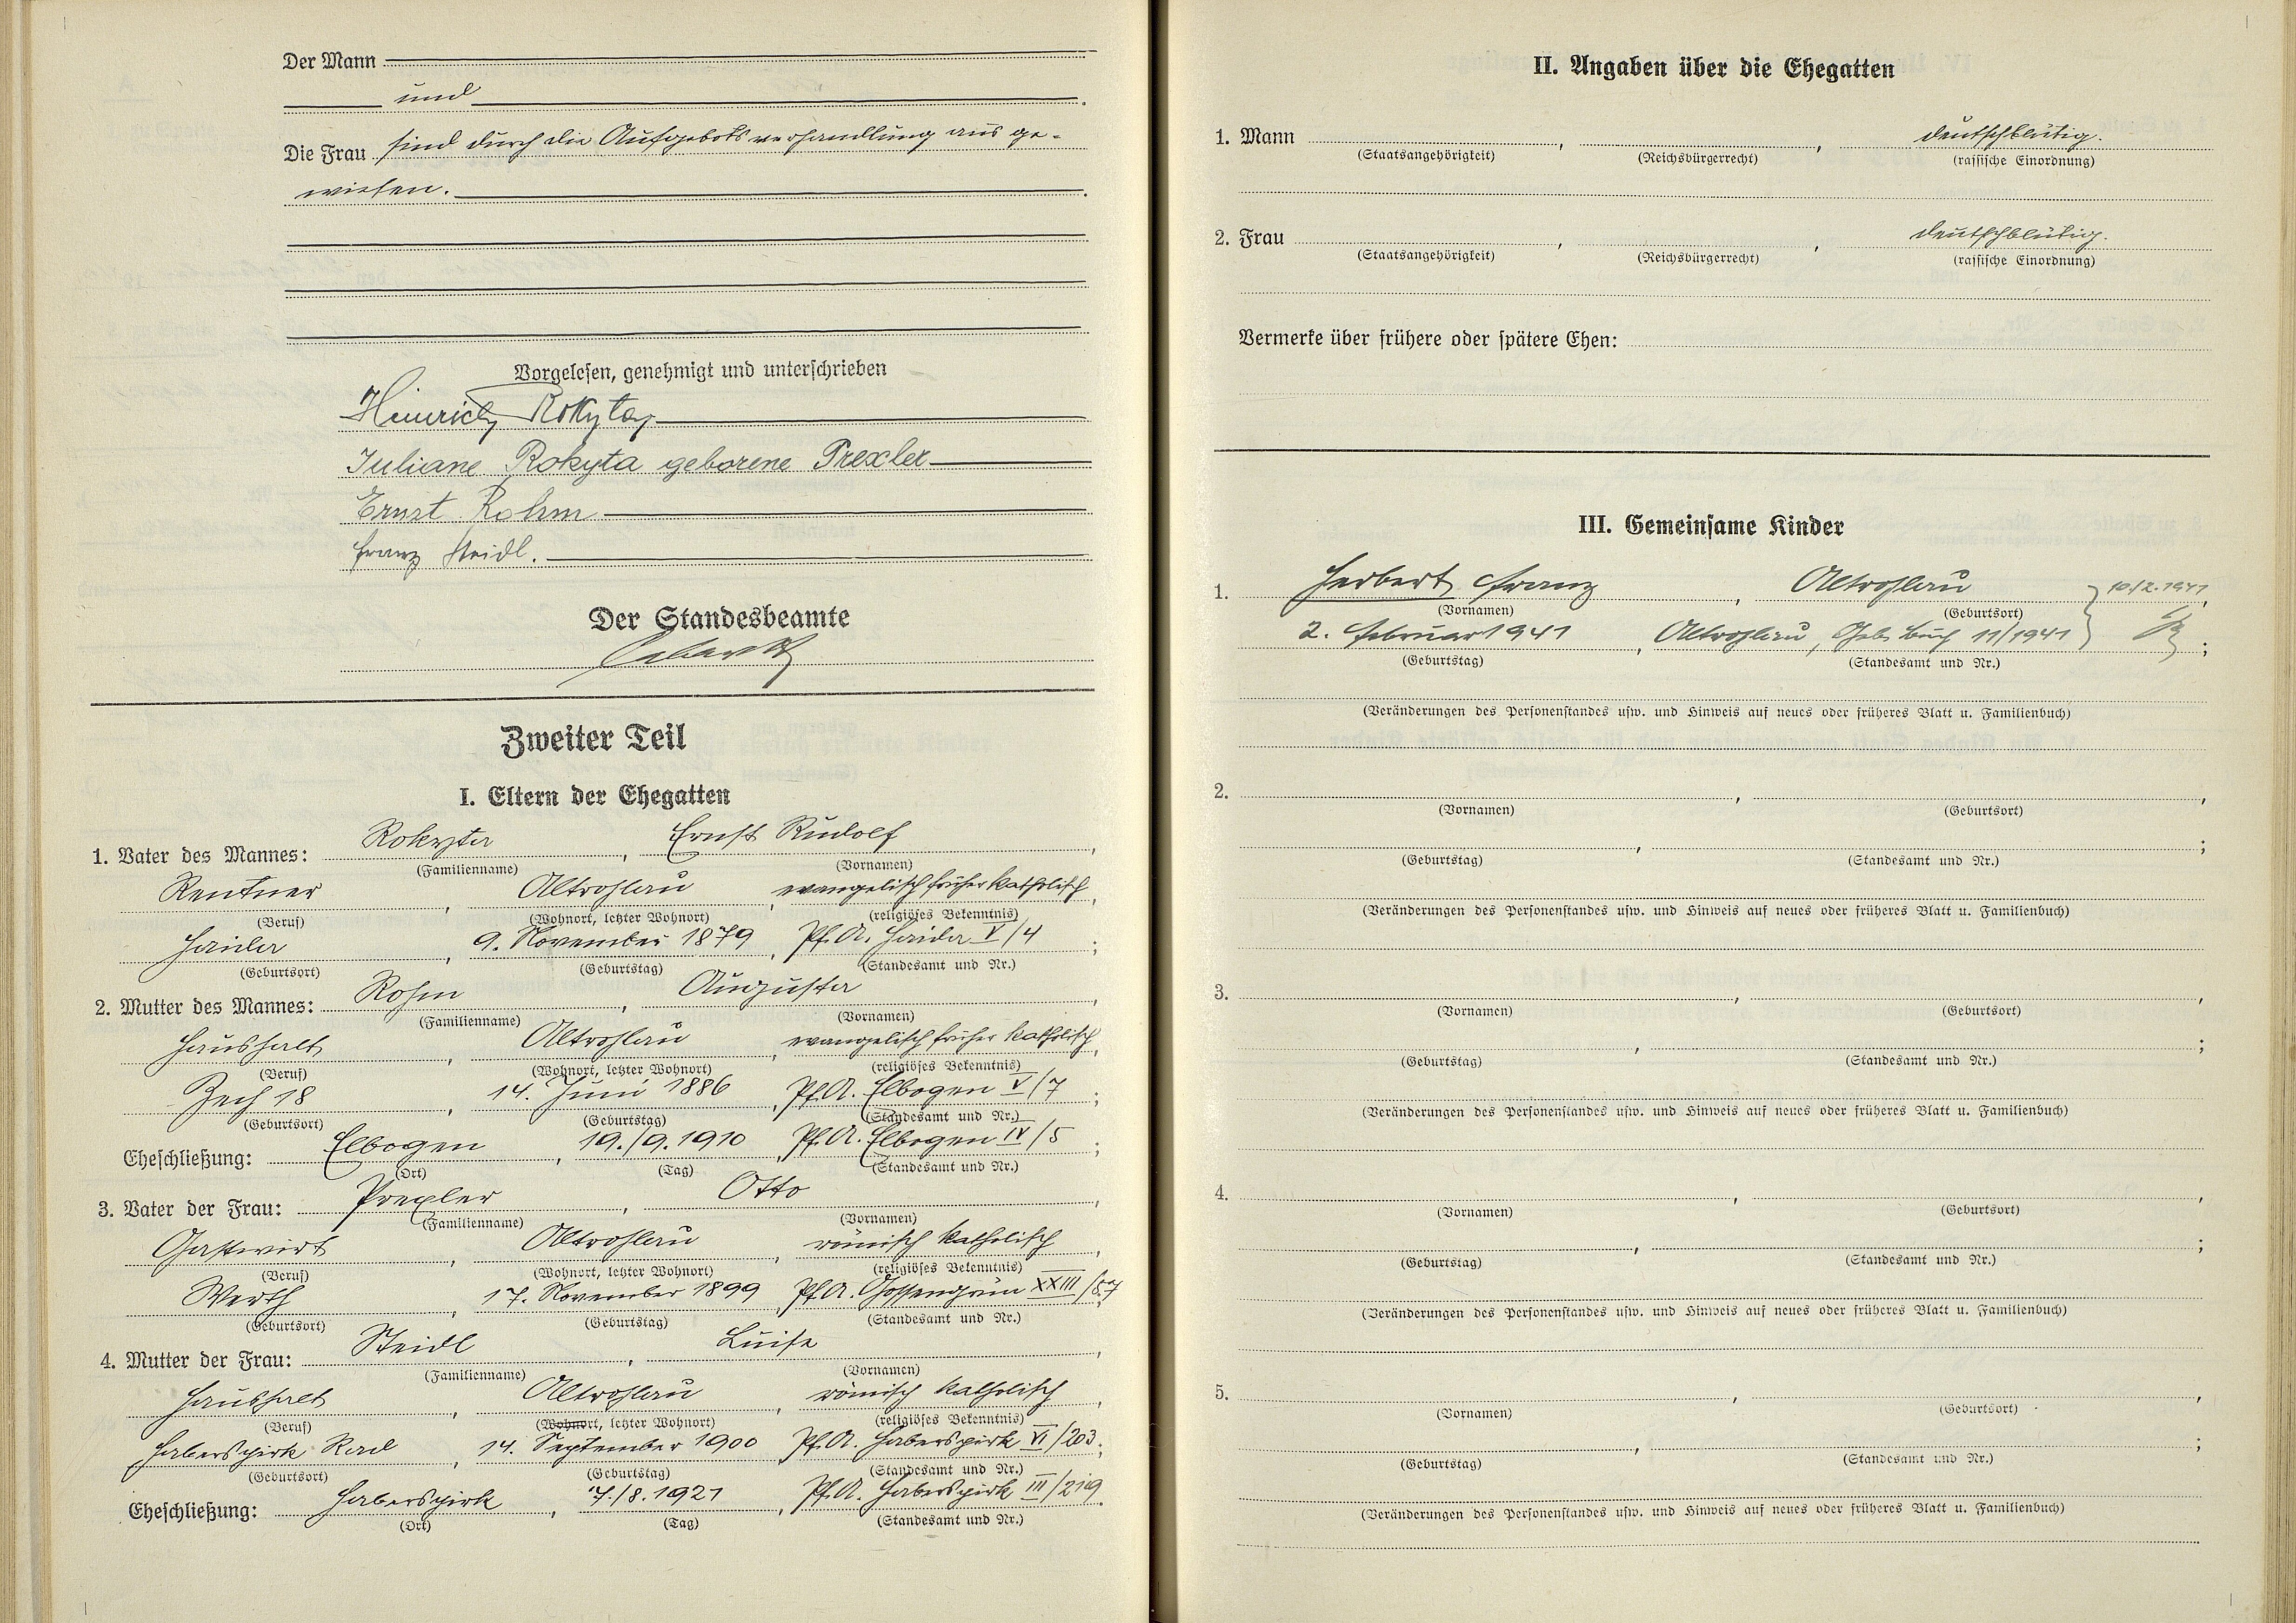 Der Mann
und
Die Frau sind durch die Aufgebotsverhandlung aus ge-
wiesen.
Vorgelesen, genehmigt und unterschrieben
Heinrich Rokyta
Juliane Rokyta geborene Prexler
Ernst Rohm
Franz Steidl.
Der Standesbeamte
Zweiter Teil
I. Eltern der Ehegatten
1. Vater des Mannes: Rokyta, Ernst Rudolf,
(Familienname) (Vornamen)
Rentner, Altrohlau, evangelisch früher katholisch,
(Beruf) (Wohnort, letzter Wohnort) (religiöses Bekenntnis)
Haida, 9. November 1879, Pf.A. Haida V/4;
(Geburtsort) (Geburtstag) (Standesamt und Nr.)
2. Mutter des Mannes: Rohm, Augusta,
(Familienname) (Vornamen)
Haushalt, Altrohlau, evangelisch früher katholisch,
(Beruf) (Wohnort, letzter Wohnort) (religiöses Bekenntnis)
Zech 18, 14. Juni 1886, Pf.A. Elbogen V/7;
(Geburtsort) (Geburtstag) (Standesamt und Nr.)
Eheschließung: Elbogen, 19./9.1910, Pf.A. Elbogen IV/5;
(Ort) (Tag) (Standesamt und Nr.)
3. Vater der Frau: Prexler, Otto,
(Familienname) (Vornamen)
Gastwirt, Altrohlau, römisch katholisch,
(Beruf) (Wohnort, letzter Wohnort) (religiöses Bekenntnis)
Werth, 17. November 1899, Pf.A. Gossengrün XXIII/87;
(Geburtsort) (Geburtstag) (Standesamt und Nr.)
4. Mutter der Frau: Steidl, Luise,
(Familienname) (Vornamen)
Haushalt, Altrohlau, römisch katholisch,
(Beruf) (Wohnort, letzter Wohnort) (religiöses Bekenntnis)
Haberspirk Rad, 14. September 1900, Pf.A. Haberspirk VI/203;
(Geburtsort) (Geburtstag) (Standesamt und Nr.)
Eheschließung: Haberspirk, 7./8.1921, Pf.A. Haberspirk III/219.
(Ort) (Tag) (Standesamt und Nr.)
II. Angaben über die Ehegatten
1. Mann , , deutschblütig.
(Staatsangehörigkeit) (Reichsbürgerrecht) (rassische Einordnung)
2. Frau , , deutschblütig.
(Staatsangehörigkeit) (Reichsbürgerrecht) (rassische Einordnung)
Vermerke über frühere oder spätere Ehen:
III. Gemeinsame Kinder
1. Herbert Franz, Altrohlau } 10/2.1941,
(Vornamen) (Geburtsort)
2. Februar 1941, Altrohlau, Geb. Buch 11/1941 ;
(Geburtstag) (Standesamt und Nr.)
(Veränderungen des Personenstandes usw. und Hinweis auf neues oder früheres Blatt u. Familienbuch)
2. , ,
(Vornamen) (Geburtsort)
, ;
(Geburtstag) (Standesamt und Nr.)
(Veränderungen des Personenstandes usw. und Hinweis auf neues oder früheres Blatt u. Familienbuch)
3. , ,
(Vornamen) (Geburtsort)
, ;
(Geburtstag) (Standesamt und Nr.)
(Veränderungen des Personenstandes usw. und Hinweis auf neues oder früheres Blatt u. Familienbuch)
4. , ,
(Vornamen) (Geburtsort)
, ;
(Geburtstag) (Standesamt und Nr.)
(Veränderungen des Personenstandes usw. und Hinweis auf neues oder früheres Blatt u. Familienbuch)
5. , ,
(Vornamen) (Geburtsort)
, ;
(Geburtstag) (Standesamt und Nr.)
(Veränderungen des Personenstandes usw. und Hinweis auf neues oder früheres Blatt u. Familienbuch)